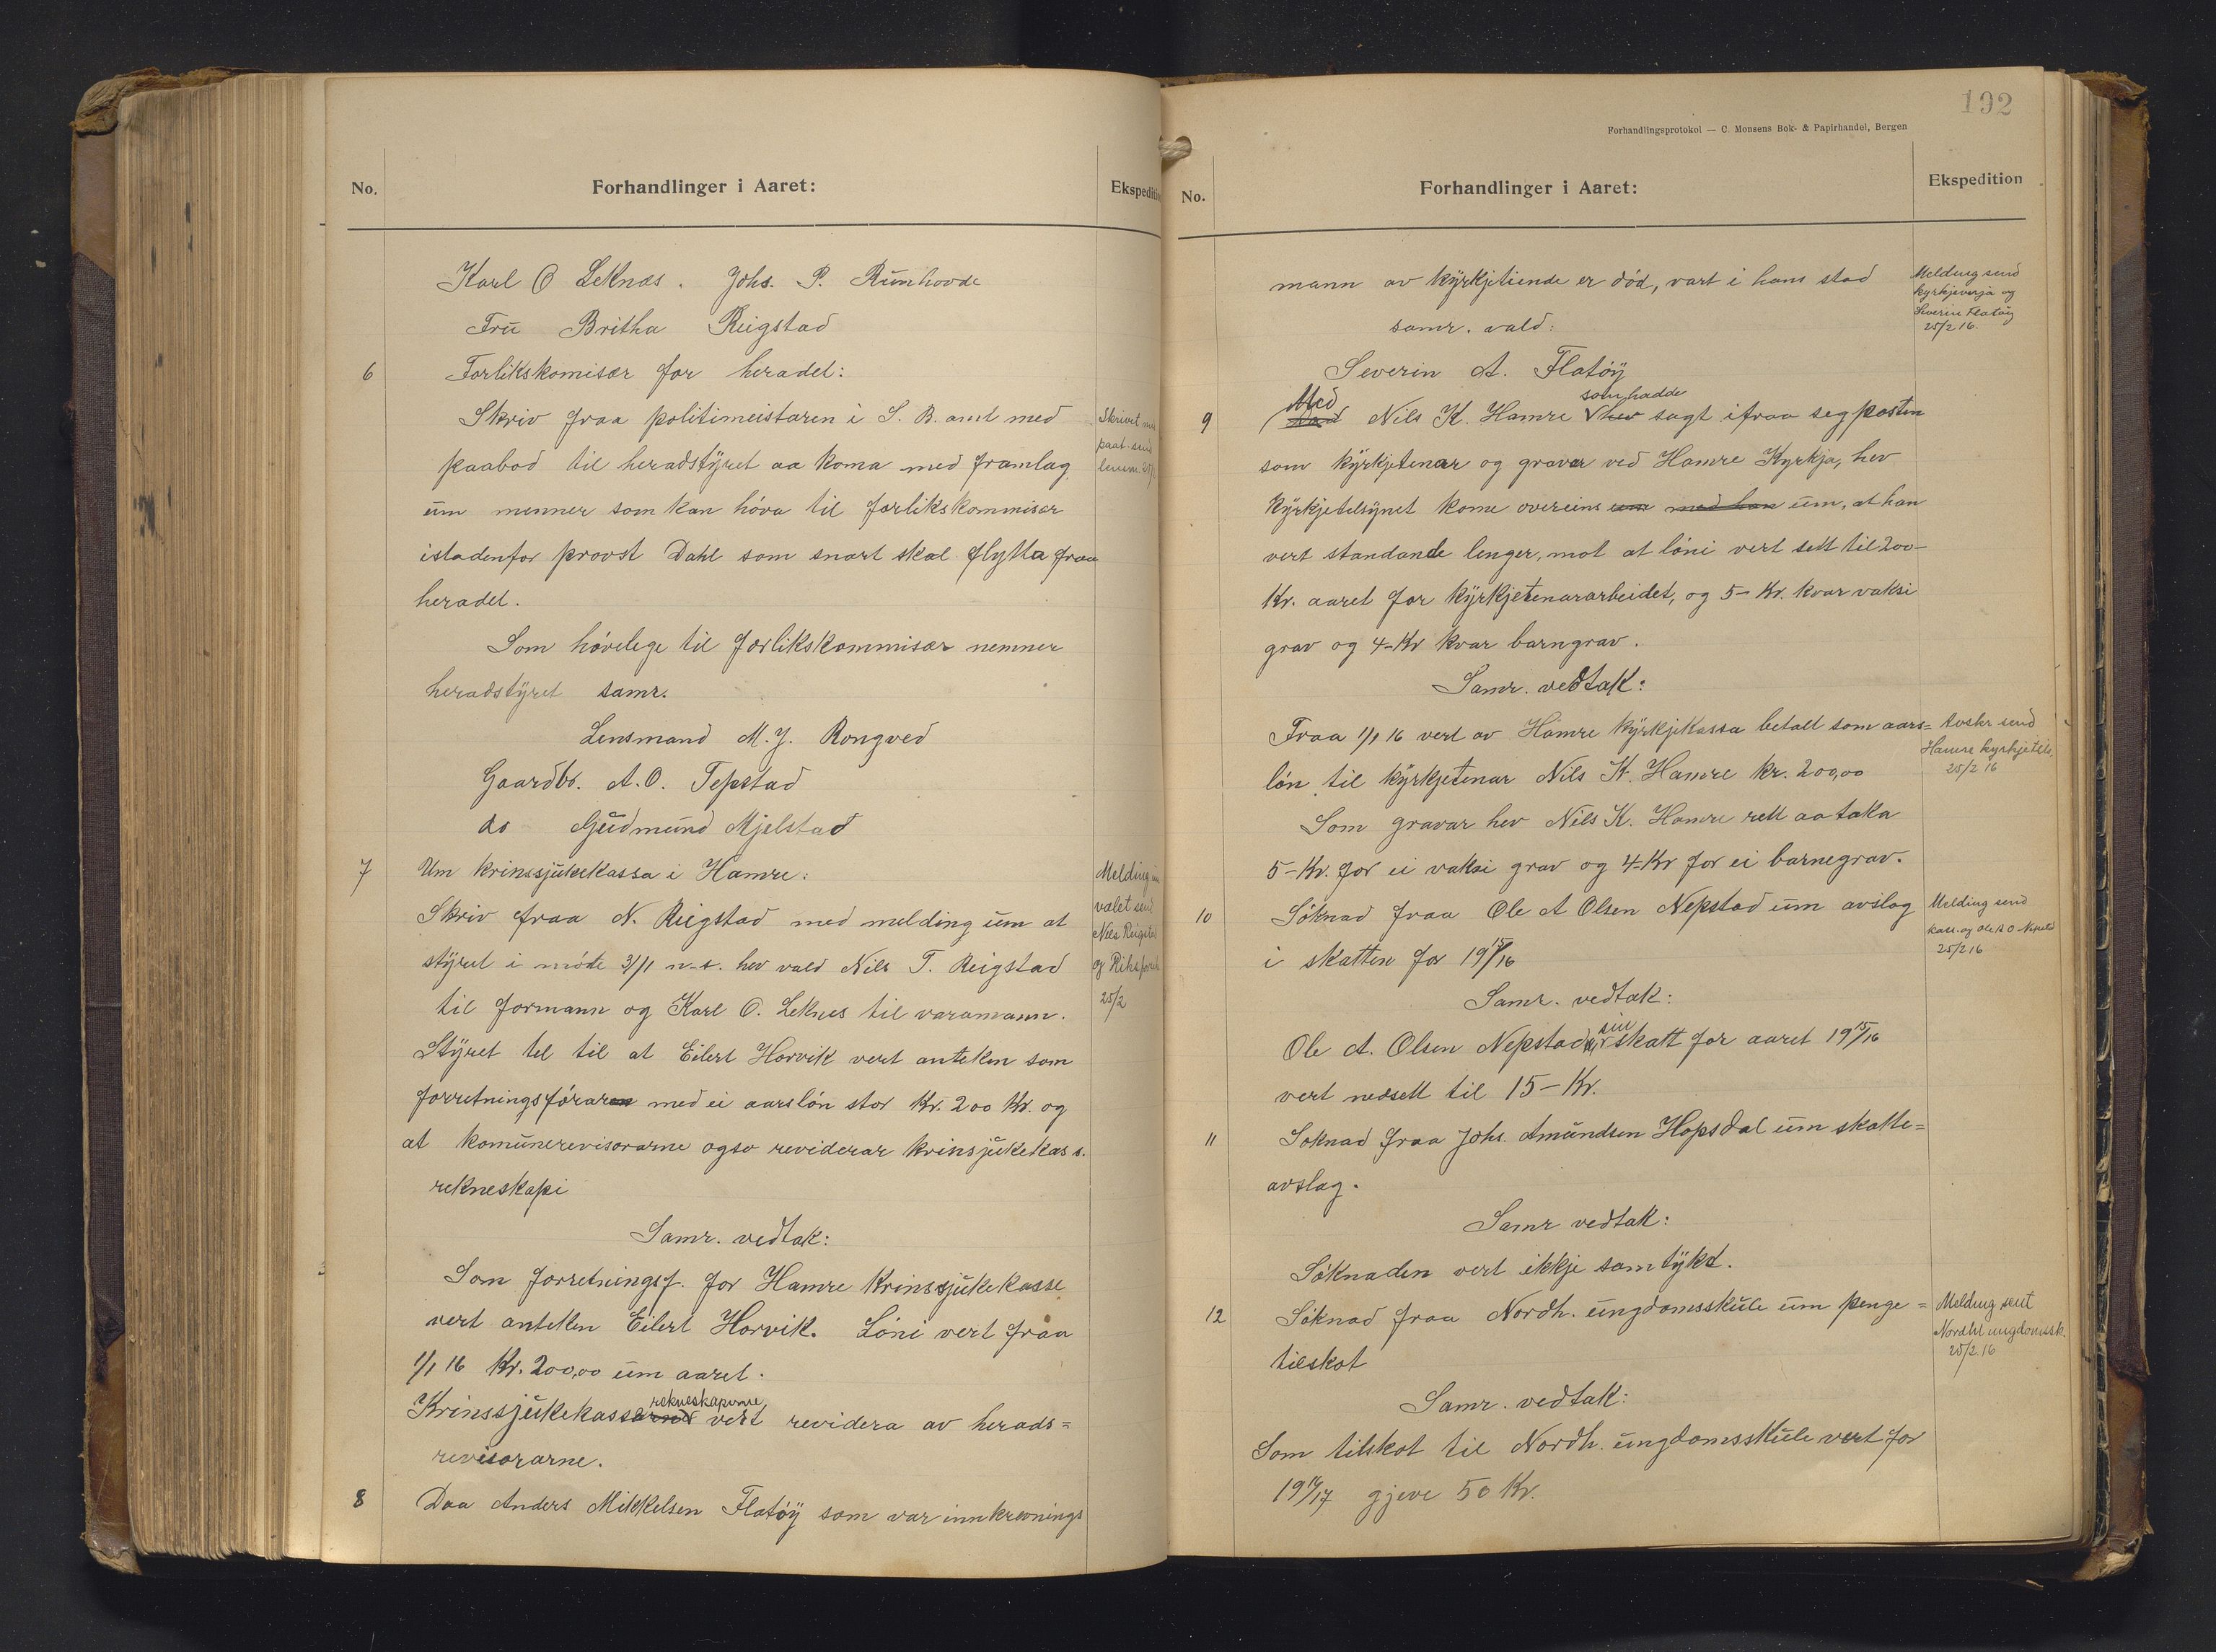 No.
Forhandlinger i Aaret:
Ekspedition
Karl O Leknes. Johs. P. Runhovde
Fru Britha Reigstad
6 Forlikskomisær for heradet:
Skriv fraa politimeistaren i S. B. amt med
paabod til heradstyret aa koma med framlag
um menner som kan høva til forlikskommisær
istadenfor provst Dahl som snart skal flytta fraa
heradet.
Skrivet
paat. send
lensm. 25/2
Som høvelege til forlikskommisær nemner
heradstyret samr.
Lensmand M. J. Rongved
Gaardbr. A. O. Tepstad
do Gudmund Mjelstad
7 Um krinssjukekassa i Hamre:
Skriv fraa N. Reigstad med melding um at
styret i møte 3/1 n-s. hev vald Nils T. Reigstad
til formann og Karl O. Leknes til varamann.
Styret tel til at Eilert Horvik vert anteken som
forretningsføraren med ei aarsløn stor Kr. 200 Kr. og
at komunerevisorarne ogso reviderar krinsjukekass s.
rekneskapi
Melding um
valet send
Nils Reigstad
og Riksfors
25/2
Samr. vedtak:
Som forretningsf. for Hamre Krinssjukekasse
vert anteken Eilert Horvik. Løni vert fraa
1/1 16 Kr. 200,00 um aaret.
rekneskaperne
Krinssjukekassarne vert revidera av herads=
revisorarne.
8 Daa Anders Mikkelsen Flatøy som var innkrevnings
192
Forhandlingsprotokol — C. Monsens Bok- & Papirhandel, Bergen
No.
Forhandlinger i Aaret:
Ekspedition
mann av kyrkjetiende er død, vart i hans stad
samr. vald:
Severin A. Flatøy
Melding send
kyrkjeverja og
Severin Flatøy
25/2 16.
Med som hadde
9 Nils K. Hamre hev sagt ifraa seg posten
som kyrkjetenar og gravar ved Hamre Kyrkja, hev
Kyrkjetilsynet kome overeins um med han um, at han
vert standande lenger, mot at løni vert sett til 200-
Kr. aaret for kyrkjetenararbeidet, og 5- Kr. kvar vaksi
grav og 4-Kr kvar barngrav.
Samr. vedtak:
Fraa 1/1 16 vert av Hamre kyrkjekassa betalt som aars=
løn til kyrkjetenar Nils K. Hamre kr. 200,00
Som gravar hev Nils K. Hamre rett aa taka
5-Kr. for ei vaksi grav og 4-Kr for ei barnegrav.
Avskr send
Hamre kyrkjetils.
25/2 16
10 Søknad fraa Ole A Olsen Nepstad um avslag
i skatten for 1915/16
Melding send
kass. og Ole A O Nepstad
25/2 16
Samr. vedtak:
sin
Ole A. Olsen Nepstad skatt for aaret 1915/16
vert nedsett til 15- Kr.
11 Søknad fraa Johs. Amundsen Hopsdal um skatte=
avslag.
Samr vedtak:
Søknaden vert ikkje samtykt.
12 Søknad fraa Nordh. ungdomsskule um penge=
tilskot
Melding sent
Nordhl ungdomssk.
25/2 16
Samr. vedtak:
Som tilskot til Nordh. ungdomsskule vert for
1916/17 gjeve 50 Kr.